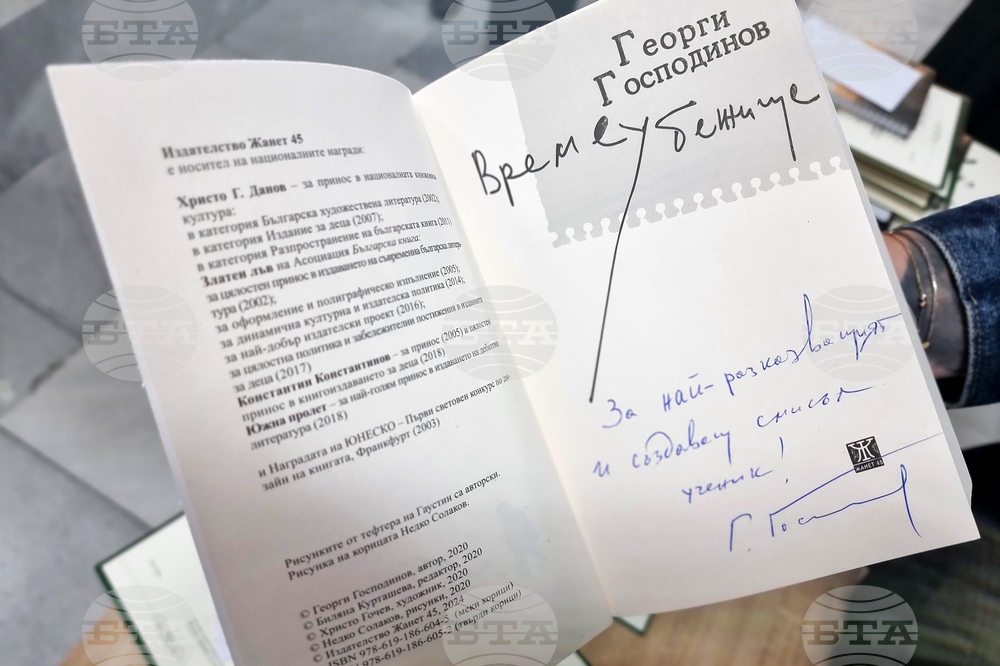 Издателство Жанет 45
е носител на националните награди:
Христо Г. Данов – за принос в националната книжовна
култура:
в категория Българска художествена литература (2002);
в категория Издание за деца (2007);
в категория Разпространение на българската книга (2011)
Златен лъв на Асоциация Българска книга:
за цялостен принос в издаването на съвременна българска литера-
тура (2002);
за оформление и полиграфическо изпълнение (2005);
за динамична културна и издателска политика (2014);
за най-добър издателски проект (2016);
за цялостна политика и забележителни постижения в изданията
за деца (2017)
Константин Константинов – за принос (2005) и цялостен
принос в книгоиздаването за деца (2018)
Южна пролет – за най-голям принос в издаването на дебютна
литература (2018)
и Наградата на ЮНЕСКО – Първи световен конкурс по ди-
зайн на книгата, Франкфурт (2003)
Рисунките от тефтера на Гаустин са авторски.
Рисунка на корицата Недко Солаков.
© Георги Господинов, автор, 2020
© Биляна Курташева, редактор, 2020
© Христо Гочев, художник, 2020
© Недко Солаков, рисунки, 2020
© Издателство Жанет 45, 2024
ISBN 978-619-186-604-5 (меки корици)
ISBN 978-619-186-605-2 (твърди корици)
Георги
Господинов
Времеубежище
За най-разказващият
и създаващ смисъл
ученик!
Г. Господинов
Ж
ЖАНЕТ 45
БТА
БТА
БТА
БТА
БТА
БТА
БТА
БТА
БТА